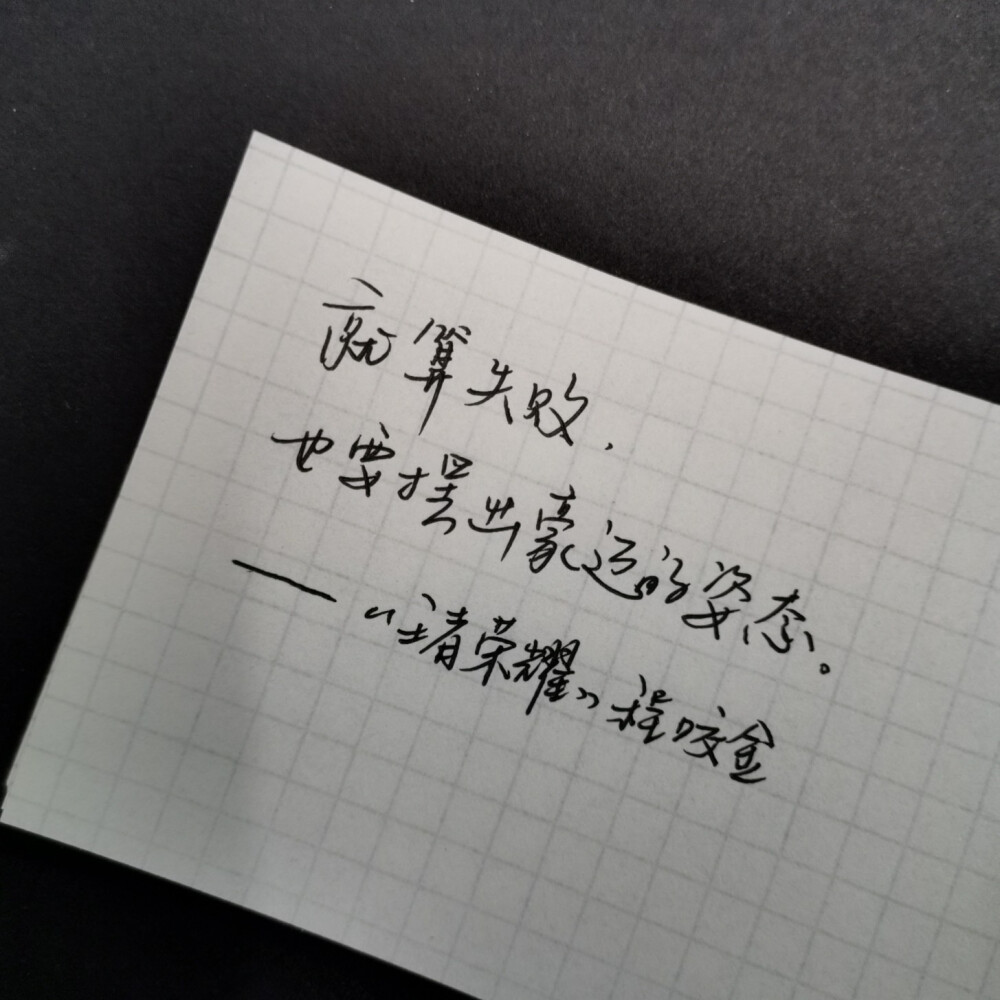 就算失败，
也要摆出豪迈的姿态。
——《王者荣耀》程咬金